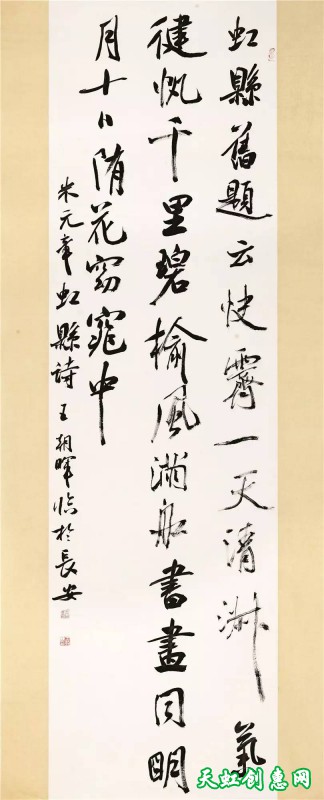 虹縣舊題云快霽一天清淑氣
健帆千里碧榆風滿船書畫同明
月十日随花窈窕中
米元章虹縣詩王朝暉臨於長安
天虹创惠网